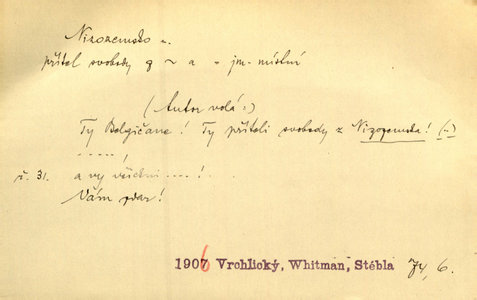 Nizozemsko
přítel svobody z ~ a = jm. místní
(Autor volá:)
Ty Belgičane! Ty příteli svobody z Nizozemska! (..)
.....!
ř. 31. a vy všichni ....!
Vám zdar!
1906 Vrchlický, Whitman, Stébla 74, 6.